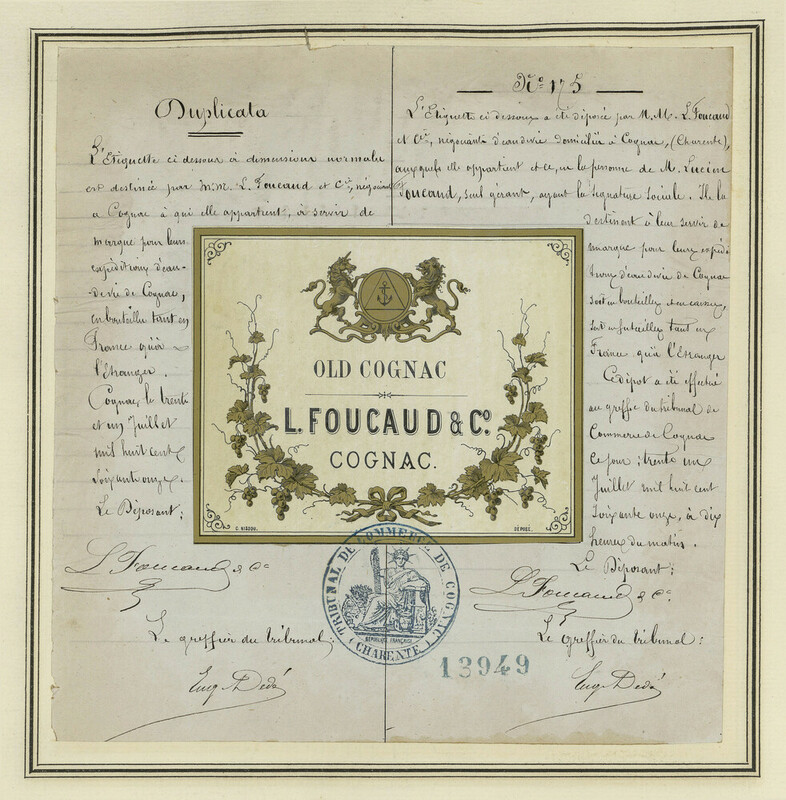 Duplicata
L'Etiquette ci dessous à dimensions normales
est destinée par M.M. L. Foucaud et Cie, négociants
à Cognac à qui elle appartient, à servir de
marque pour leurs
expéditions d'eau-
de-vie de Cognac,
en bouteilles tant en
France qu'à
l'Etranger.
Cognac, le trente
et un Juillet
mil huit cent
soixante onze.
Le Déposant:
L Foucaud & Co
Le greffier du tribunal:
Eug. Dédé
No 175
L'Etiquette ci dessous a été déposée par M.M. L. Foucaud
et Cie, négociants d'eau de vie domiciliés à Cognac, (Charente),
auxquels elle appartient et ce, en la personne de M. Lucien
Foucaud, seul gérant, ayant la signature sociale. Ils la
destinent à leur servir de
marque pour leurs expédi
tions d'eau de vie de Cognac
soit en bouteilles et en caisses,
soit en futailles tant en
France qu'à l'Etranger
Ce dépôt a été effectué
au greffe du tribunal de
Commerce de Cognac
ce jour: trente un
Juillet mil huit cent
soixante onze, à dix
heures du matin.
Le Déposant:
L Foucaud & Co
Le Greffier du tribunal:
Eug. Dédé
OLD COGNAC
L. FOUCAUD & Co.
COGNAC.
DÉPOSÉ.
TRIBUNAL DE COMMERCE DE COGNAC
RÉPUBLIQUE FRANÇAISE
(CHARENTE)
13949